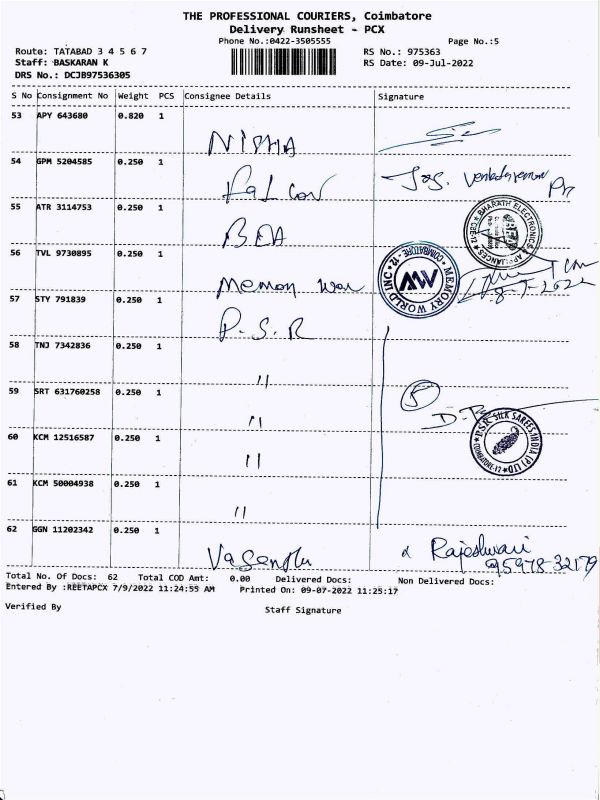 THE PROFESSIONAL COURIERS, Coimbatore
Delivery Runsheet - PCX
Phone No.:0422-3505555
Page No.:5
Route: TATABAD 3 4 5 6 7
RS No.: 975363
Staff: BASKARAN K
RS Date: 09-Jul-2022
DRS No.: DCJB97536305
S No Consignment No Weight PCS Consignee Details Signature
53 APY 643680 0.820 1
NISHA
54 GPM 5204585 0.250 1
Falcon
55 ATR 3114753 0.250 1
BEA
BHARATH ELECTRONICS & APPLIANCES
CBE-12
56 TVL 9730895 0.250 1
MEMORY WORLD INC
COIMBATORE - 12
MW
57 STY 791839 0.250 1
P.S.R
58 TNJ 7342836 0.250 1
"
59 SRT 631760258 0.250 1
"
5
60 KCM 12516587 0.250 1
"
P.S.R. SILK SAREES INDIA (P) LTD
COIMBATORE-12
61 KCM 50004938 0.250 1
"
62 GGN 11202342 0.250 1
Rajeshwari
95978-32179
Total No. Of Docs: 62 Total COD Amt: 0.00 Delivered Docs: Non Delivered Docs:
Entered By :REETAPCX 7/9/2022 11:24:55 AM Printed On: 09-07-2022 11:25:17
Verified By Staff Signature